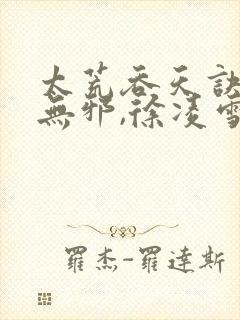 太荒吞天訣
無邪,徐凌雪
羅杰-羅達斯